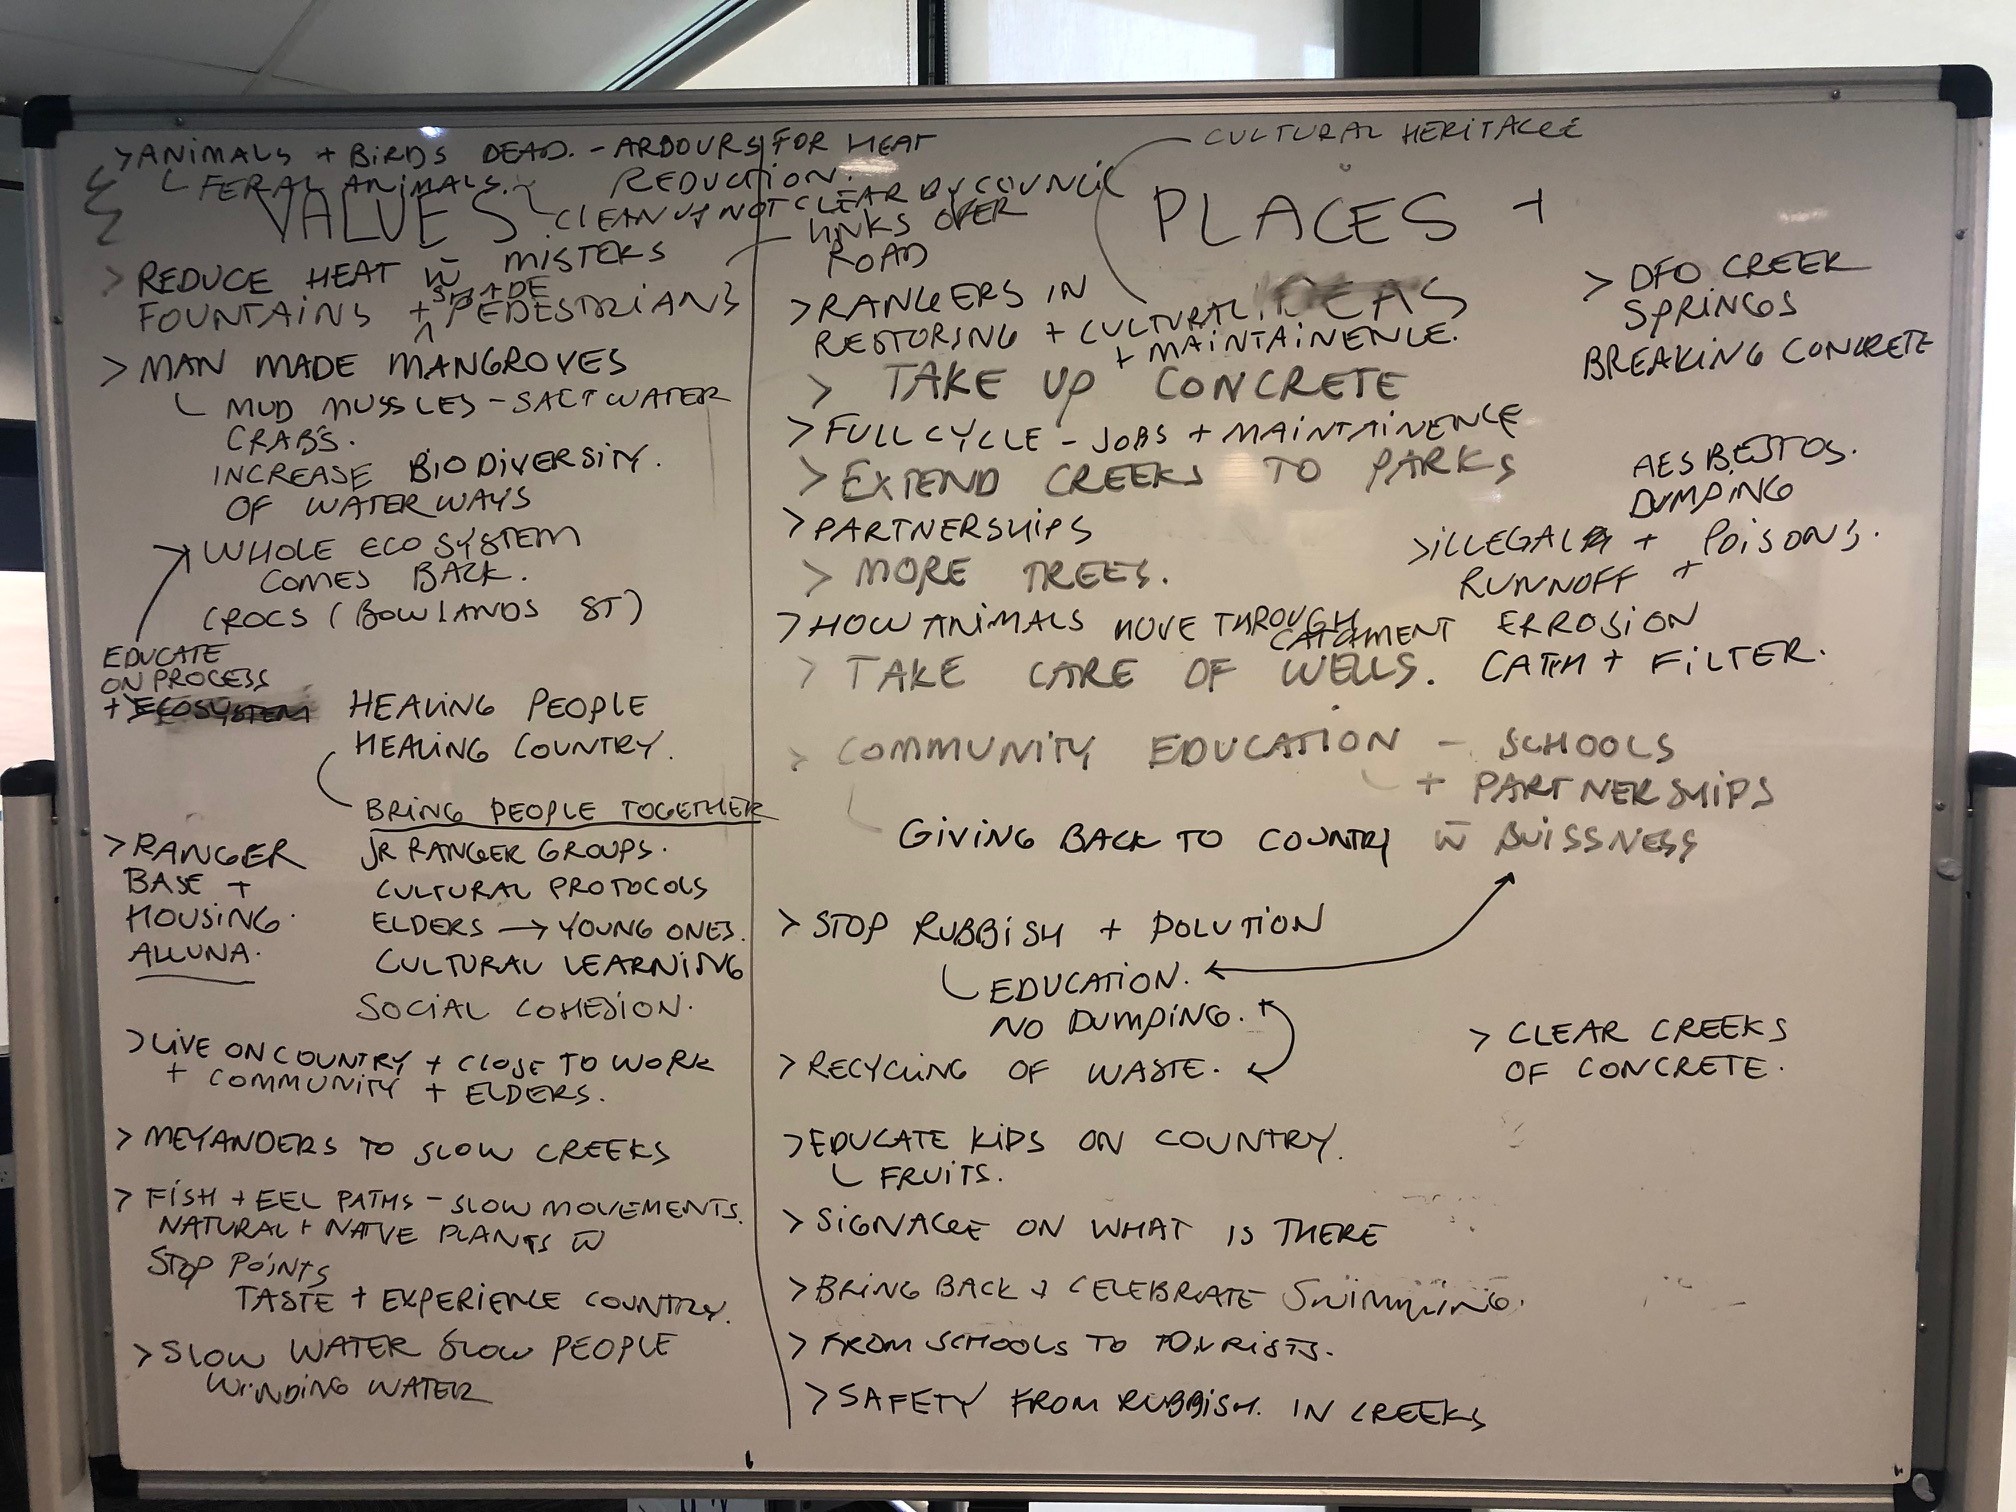 > ANIMALS + BIRDS DEAD. - ARDOURS FOR HEAT
REDUCTION.
FERAL ANIMALS.
CLEAN UP NOT CLEAR BY COUNCIL
VALUES
LINKS OVER
ROAD
> REDUCE HEAT w̄ MISTERS
FOUNTAINS + SHADE PEDESTRIANS
> MAN MADE MANGROVES
MUD MUSSLES - SALTWATER
CRABS.
INCREASE BIODIVERSITY.
OF WATER WAYS
WHOLE ECO SYSTEM
COMES BACK.
CROCS (BOWLANDS ST)
EDUCATE
ON PROCESS
+ ECOSYSTEM
HEALING PEOPLE
HEALING COUNTRY.
BRING PEOPLE TOGETHER
JR RANGER GROUPS.
CULTURAL PROTOCOLS
ELDERS → YOUNG ONES.
CULTURAL LEARNING
SOCIAL COHESION.
> RANGER
BASE +
HOUSING.
ALLUNA.
> LIVE ON COUNTRY + CLOSE TO WORK
+ COMMUNITY + ELDERS.
> MEYANDERS TO SLOW CREEKS
> FISH + EEL PATHS - SLOW MOVEMENTS.
NATURAL + NATIVE PLANTS w̄
STOP POINTS
TASTE + EXPERIENCE COUNTRY.
> SLOW WATER SLOW PEOPLE
WINDING WATER
CULTURAL HERITAGE
PLACES +
IDEAS
> RANGERS IN
RESTORING + CULTURAL
+ MAINTAINENCE.
> TAKE UP CONCRETE
> FULL CYCLE - JOBS + MAINTAINENCE
> EXTEND CREEKS TO PARKS
> PARTNERSHIPS
> MORE TREES.
> HOW ANIMALS MOVE THROUGH
CATCHMENT
> TAKE CARE OF WELLS.
> COMMUNITY EDUCATION - SCHOOLS
+ PARTNERSHIPS
GIVING BACK TO COUNTRY w̄ BUISSNESS
> STOP RUBBISH + POLUTION
EDUCATION.
NO DUMPING.
> RECYCLING OF WASTE.
> EDUCATE KIDS ON COUNTRY.
FRUITS.
> SIGNAGE ON WHAT IS THERE
> BRING BACK + CELEBRATE SWIMMING.
> FROM SCHOOLS TO TOURISTS.
> SAFETY FROM RUBBISH. IN CREEKS
> DFO CREEK
SPRINGS
BREAKING CONCRETE
AESBESTOS.
DUMPING
> ILLEGAL + POISONS.
RUNNOFF +
ERROSION
CATCH + FILTER.
> CLEAR CREEKS
OF CONCRETE.